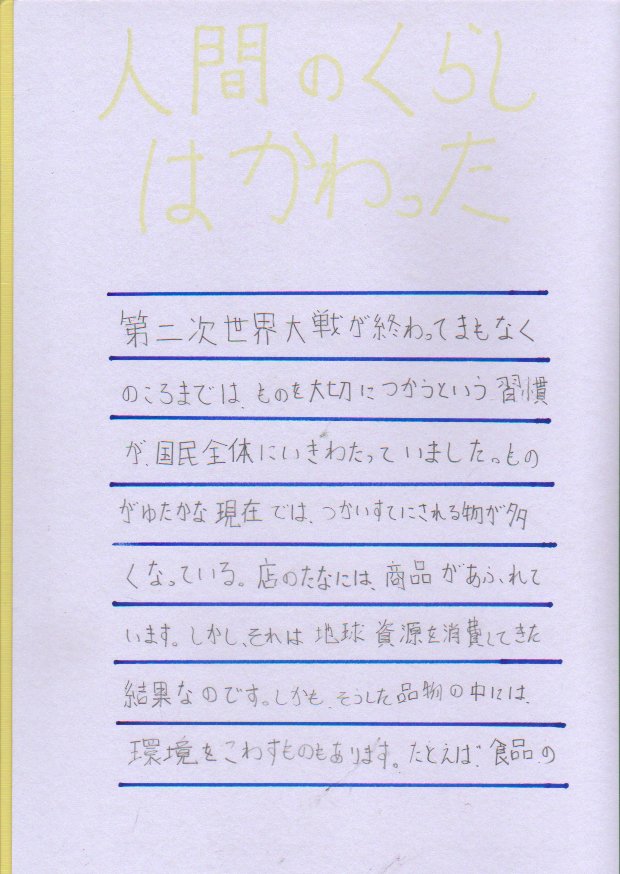 人間のくらし
はかわった
第二次世界大戦が終わってまもなく
のころまでは、ものを大切につかうという習慣
が、国民全体にいきわたっていました。もの
がゆたかな現在では、つかいすてにされる物が多
くなっている。店のたなには、商品があふれて
います。しかし、それは地球資源を消費してきた
結果なのです。しかも、そうした品物の中には、
環境をこわすものもあります。たとえば、食品の